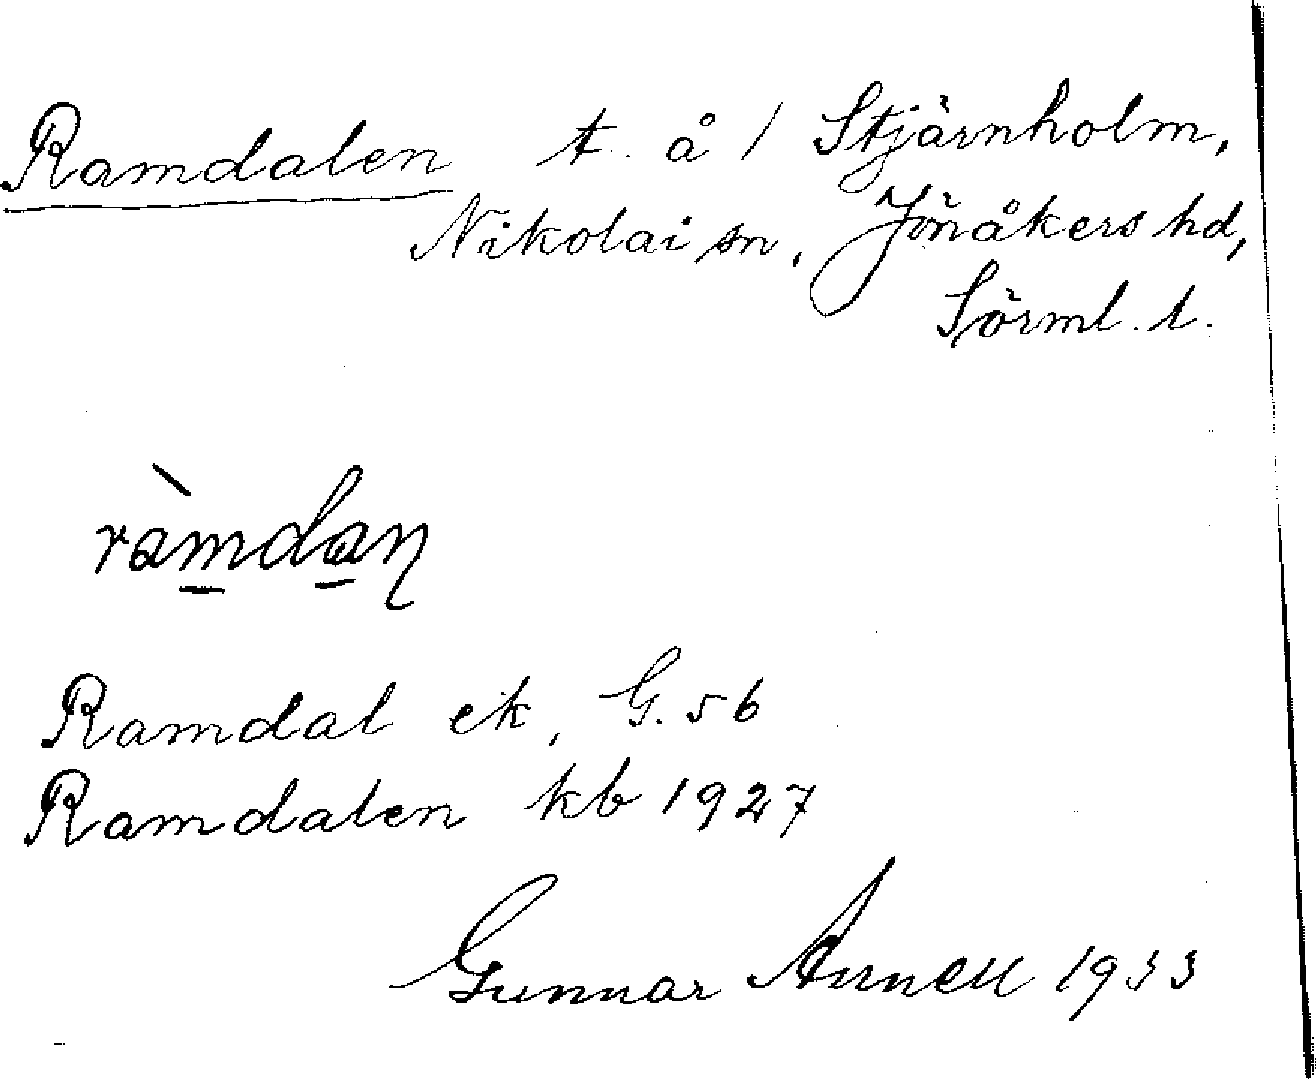 Ramdalen t. å 1 Stjärnholm,
Nikolai sn, Jönåkers hd,
Sörml. l.
ràmdaɳ
Ramdal ek, G. 56
Ramdalen kb 1927
Gunnar Arnell 1933